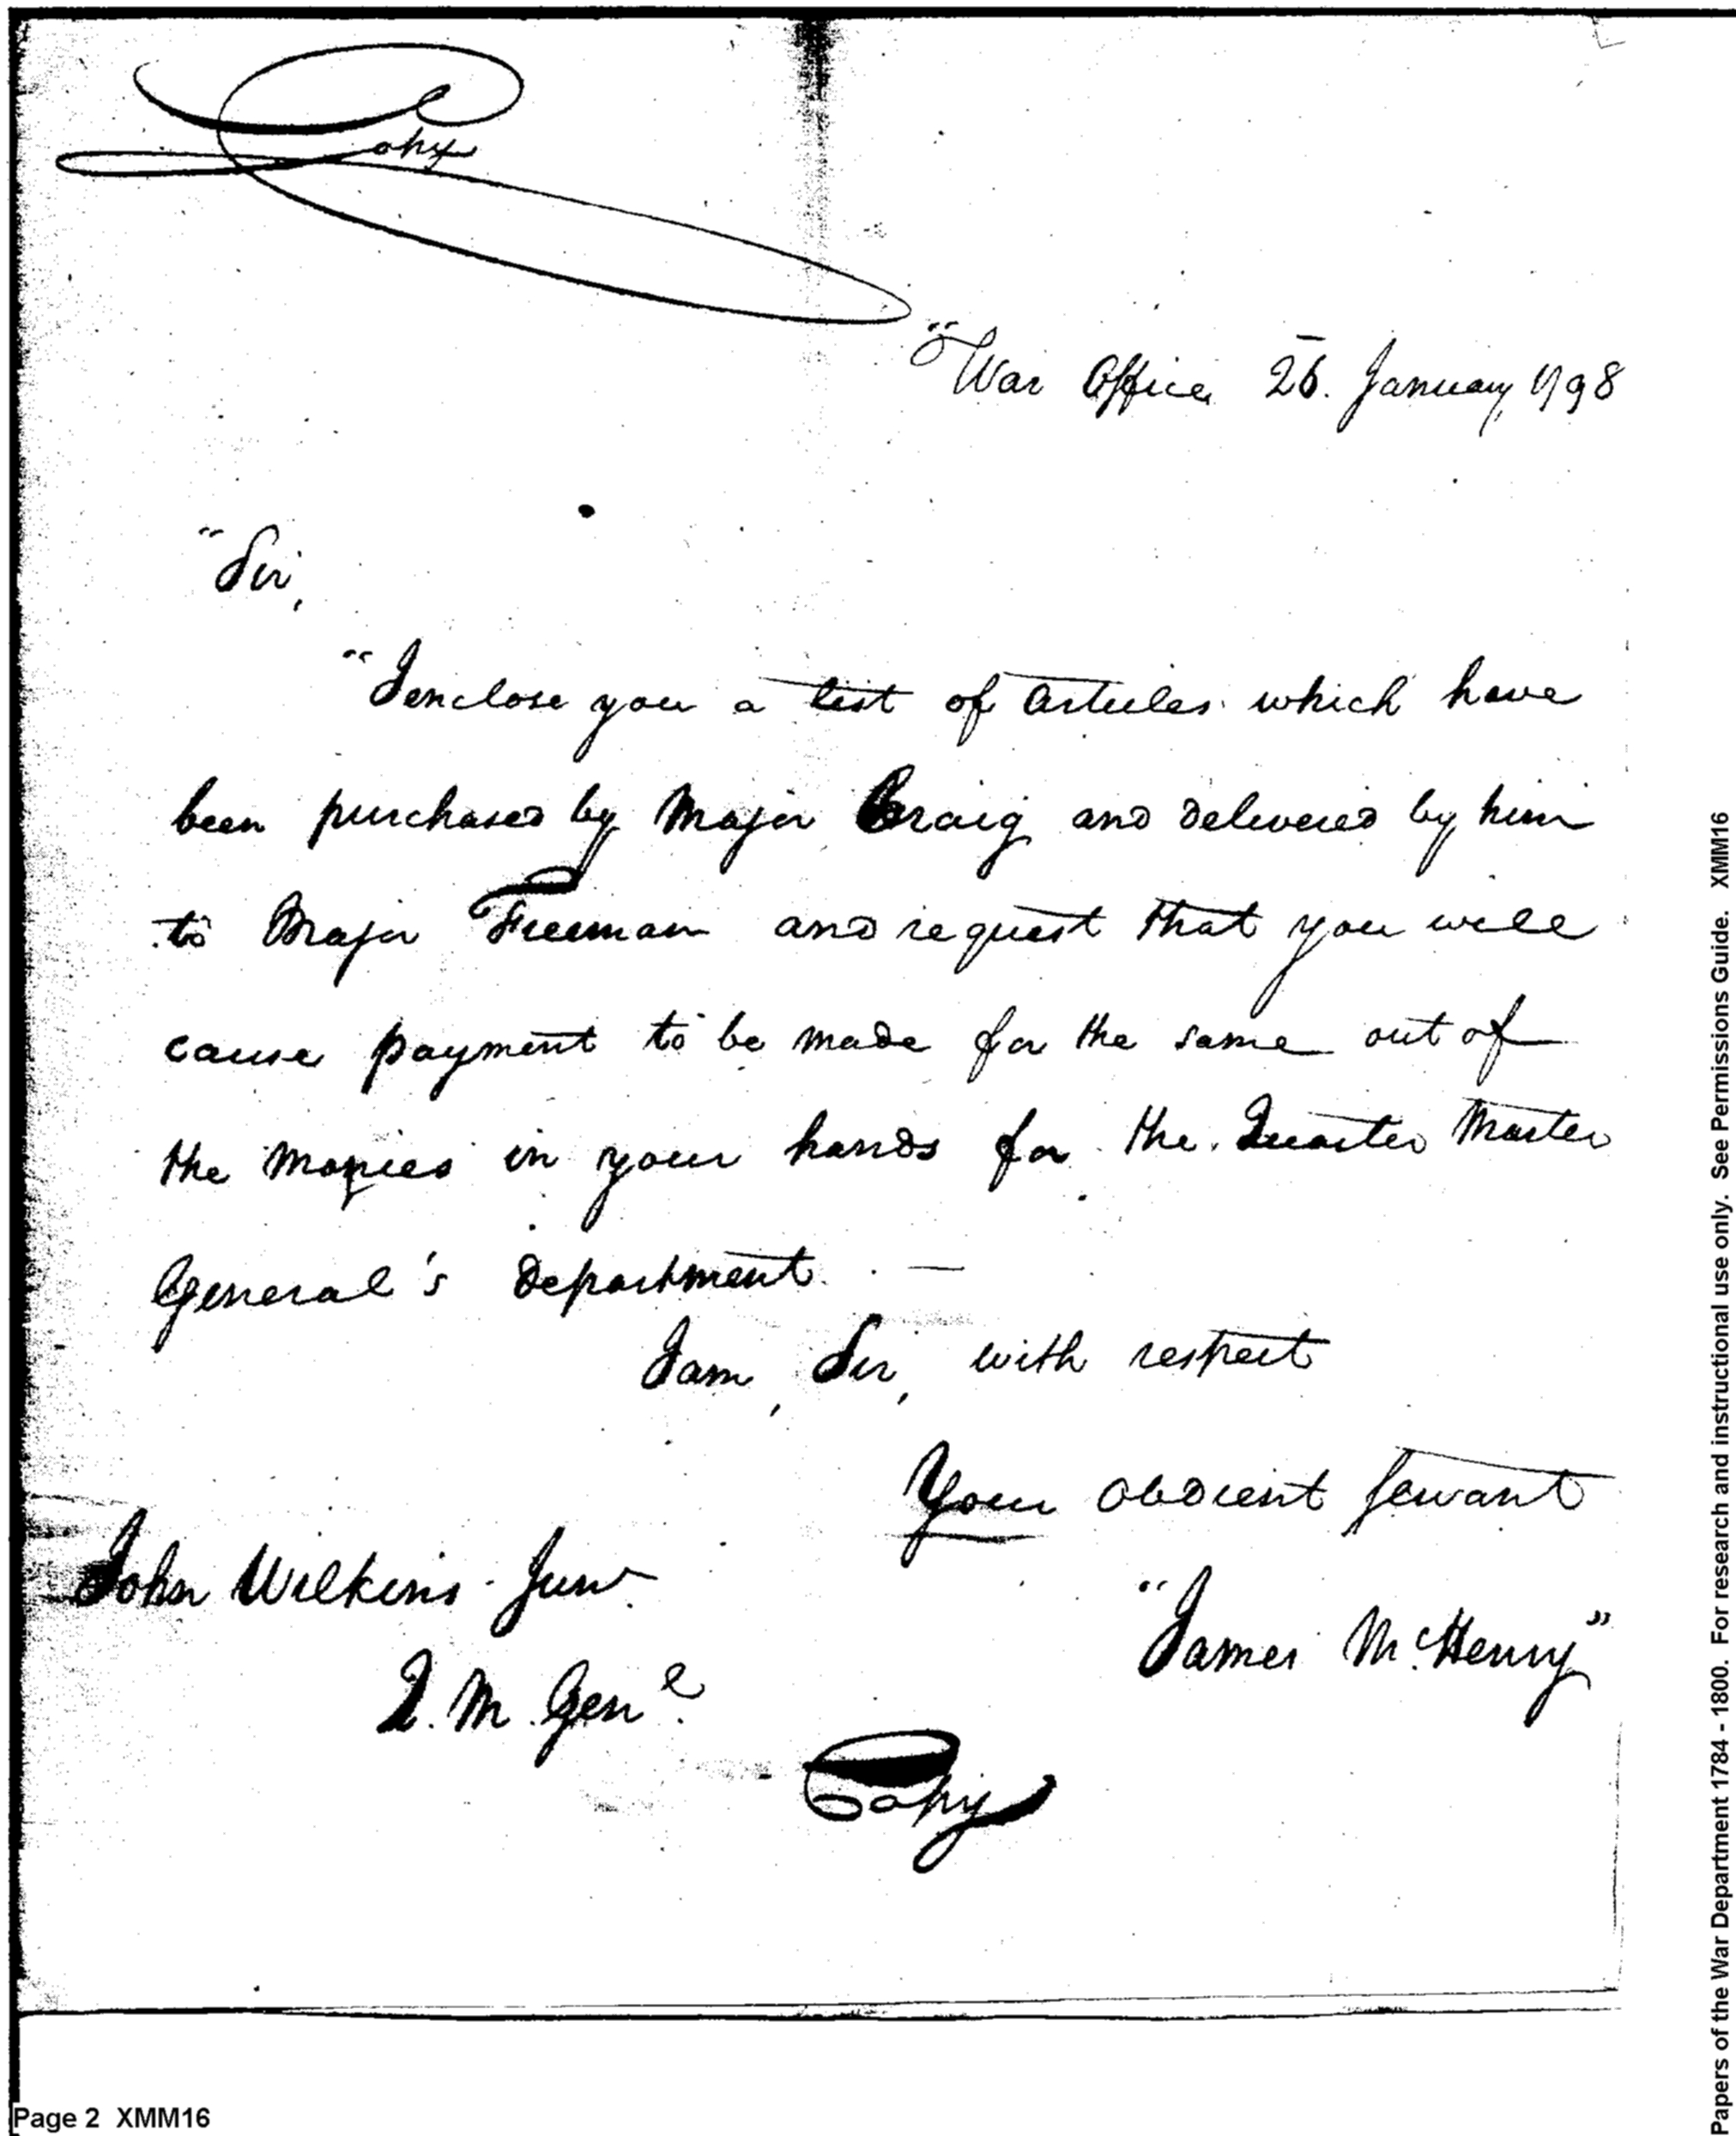 Copy
"War Office 26. January 1798
"Sir,
"I enclose you a list of Articles which have
been purchased by Major Craig and delivered by him
to Major Freeman and request that you will
cause payment to be made for the same out of
the monies in your hands for the Quarter Master
General's department. —
I am, Sir, with respect
Your obdient Servant
John Wilkins Junr.
"James McHenry"
Q. M. Genl.
Copy
Page 2 XMM16
Papers of the War Department 1784 - 1800. For research and instructional use only. See Permissions Guide. XMM16